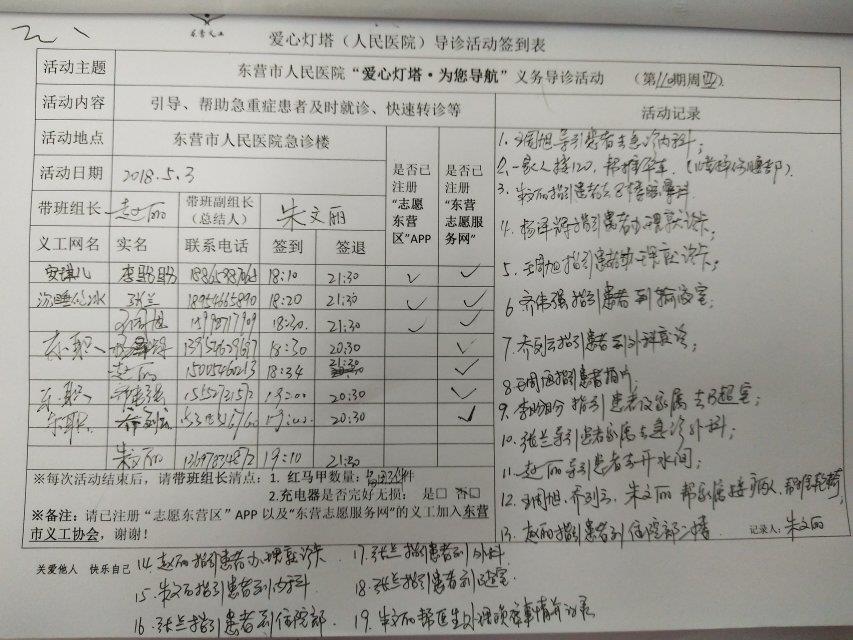 东营义工
爱心灯塔（人民医院）导诊活动签到表
活动主题 东营市人民医院“爱心灯塔·为您导航”义务导诊活动 （第110期周四）
活动内容 引导、帮助急重症患者及时就诊、快速转诊等 活动记录
活动地点 东营市人民医院急诊楼
活动日期 2018.5.3
是否已注册“志愿东营区”APP
是否已注册“东营志愿服务网”
带班组长 赵丽 带班副组长（总结人） 朱文丽
义工网名 实名 联系电话 签到 签退
安琪儿 李盼盼 18:10 21:30 ✓ ✓
沉睡的冰 张兰 18954665890 18:20 21:30 ✓ ✓
王周旭 18:30 21:30 ✓ ✓
东职 18:30 20:30 ✓
赵丽 15005460213 18:34 21:30 ✓
东职 乔伟强 19:00 20:30 ✓
东职 乔列云 20:30 ✓
朱文丽 19:10 21:30
※每次活动结束后，请带班组长清点：1. 红马甲数量： 件
2.充电器是否完好无损： 是□ 否□
※备注：请已注册“志愿东营区”APP以及“东营志愿服务网”的义工加入东营市义工协会，谢谢！
1. 王周旭导引患者去急诊内科；
2. 一家人接120，帮推平车．
3. 朱文丽指引患者去
4. 指引患者办理就诊卡；
5. 王周旭指引患者办理就诊卡；
6. 乔伟强指引患者到输液室；
7. 乔列云指引患者到外科就诊；
8. 王周旭指引患者拍片
9. 李盼盼指引患者及家属去B超室；
10. 张兰导引患者家属去急诊外科；
11. 赵丽导引患者去开水间；
12. 王周旭、乔列云、朱文丽帮家属接病人，帮推轮椅
13. 赵丽指引患者到住院部二楼
记录人：朱文丽
关爱他人 快乐自己
14. 赵丽指引患者办理就诊卡
15. 朱文丽指引患者到内科
16. 张兰指引患者到住院部
17. 张兰指引患者到外科
18. 张兰指引患者到B超室
19. 朱文丽帮医生处理